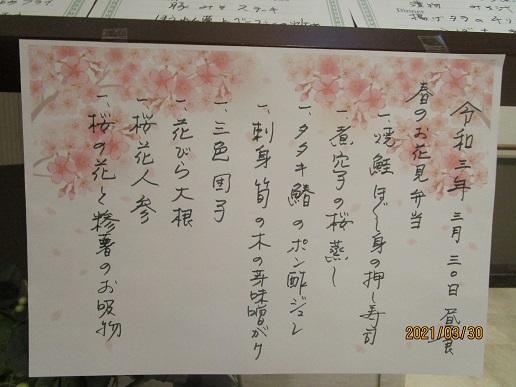 令和三年 三月 三〇日 昼食
春のお花見弁当
一、焼鮭ほぐし身の押し寿司
一、煮穴子の桜蒸し
一、タタキ鰆のポン酢ジュレ
一、刺身筍の木の芽味噌がけ
一、三色団子
一、花びら大根
一、桜花人参
一、桜の花と糝薯のお吸物
豚
ステーキ
Dinner
2021/03/30